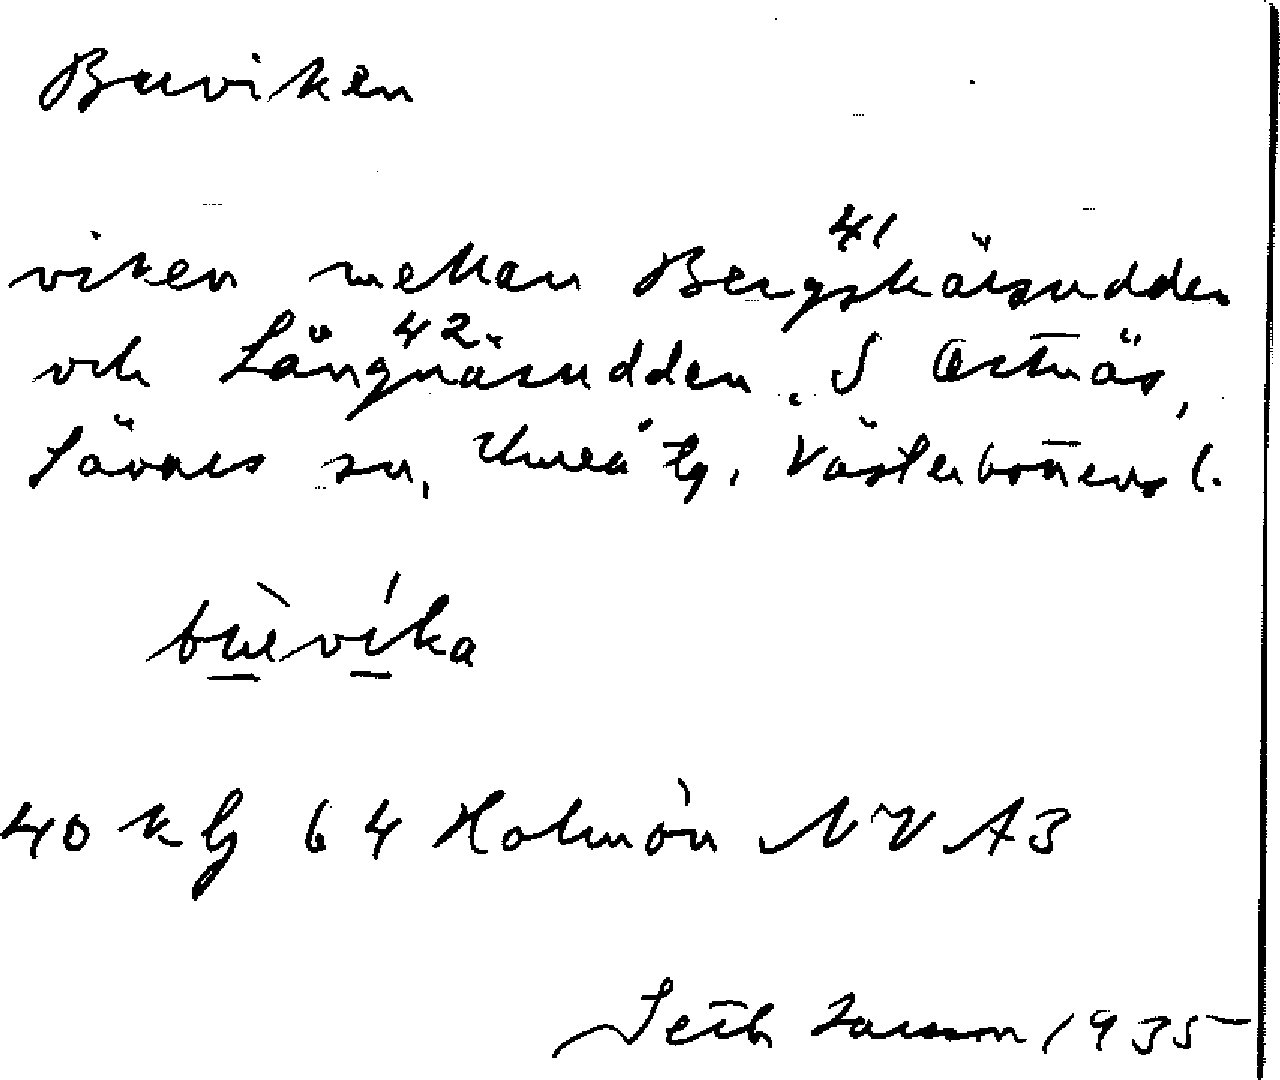 Buviken
41
viken mellan Bergskärsudden
42
och Långnäsudden, S Ostnäs,
Sävars sn, Umeå tg, Västerbottens l.
bùvíka
40 k bl 64 Holmön NV A3
Seth Larsson 1935